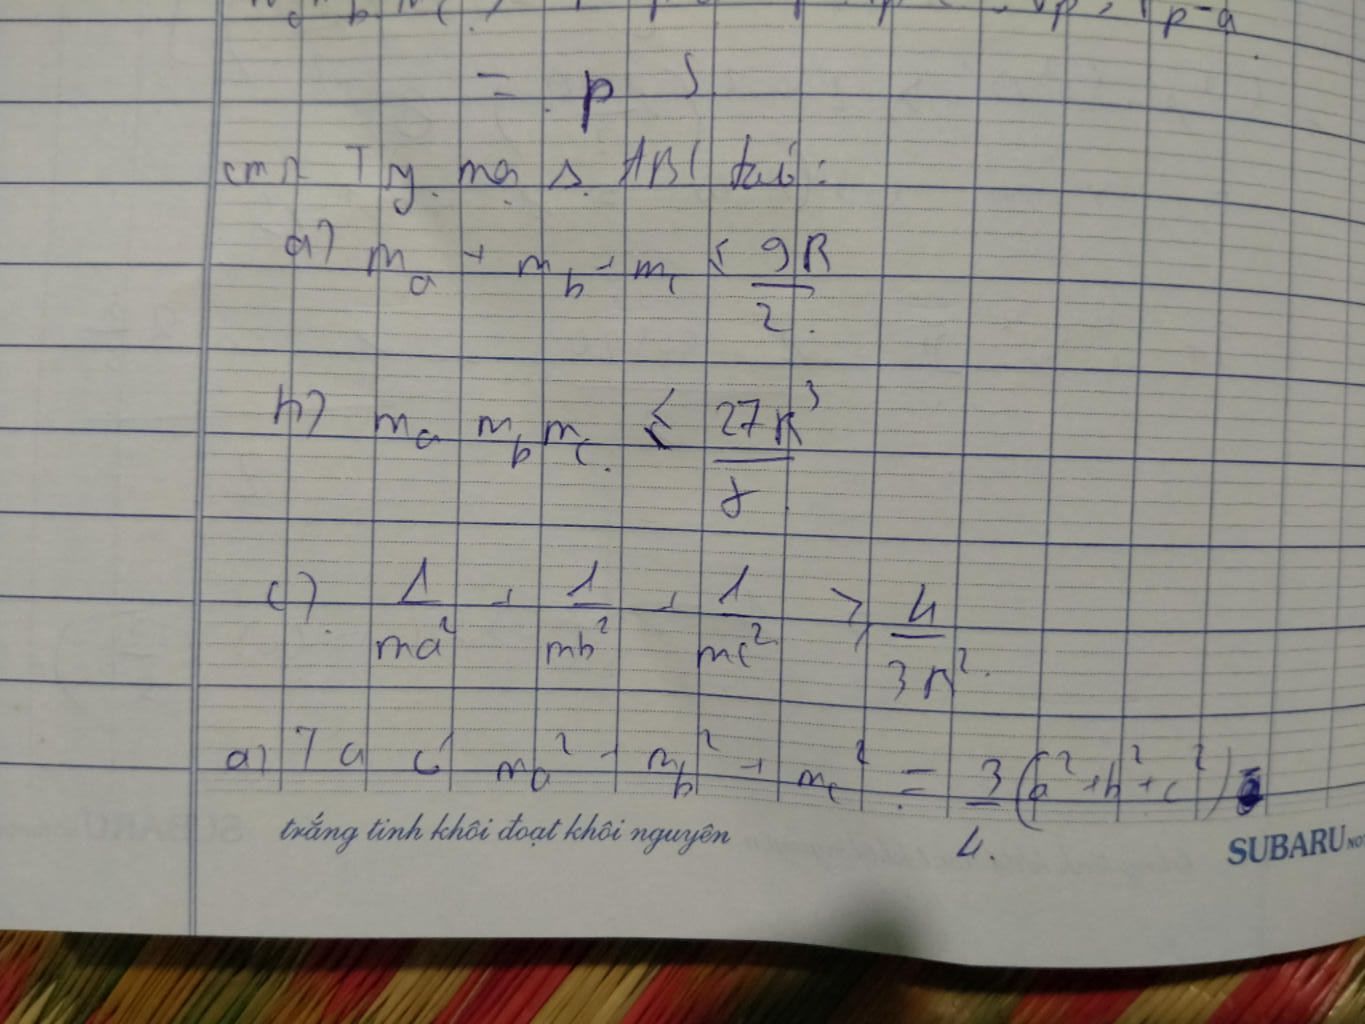 = p S
cmr Tg ma Δ ABC ta có:
a) m_a + m_b + m_c ≤ 9R/2
b) m_a m_b m_c ≤ 27R³/8
c) 1/ma² + 1/mb² + 1/mc² ≥ 4/3R²
a) Ta có m_a² + m_b² + m_c² = 3/4 (a² + b² + c²)
trắng tinh khôi đoạt khôi nguyên
SUBARU